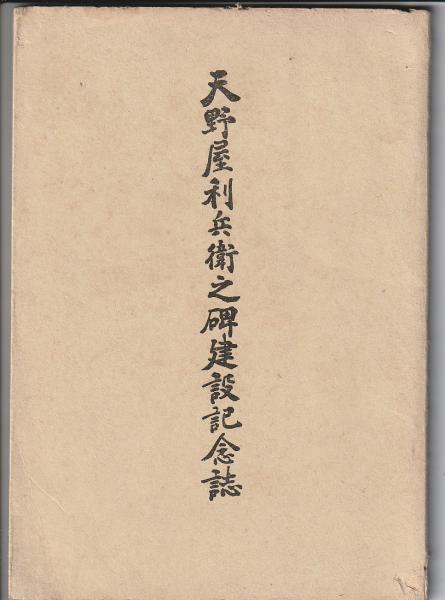 天野屋利兵衛之碑建設記念誌